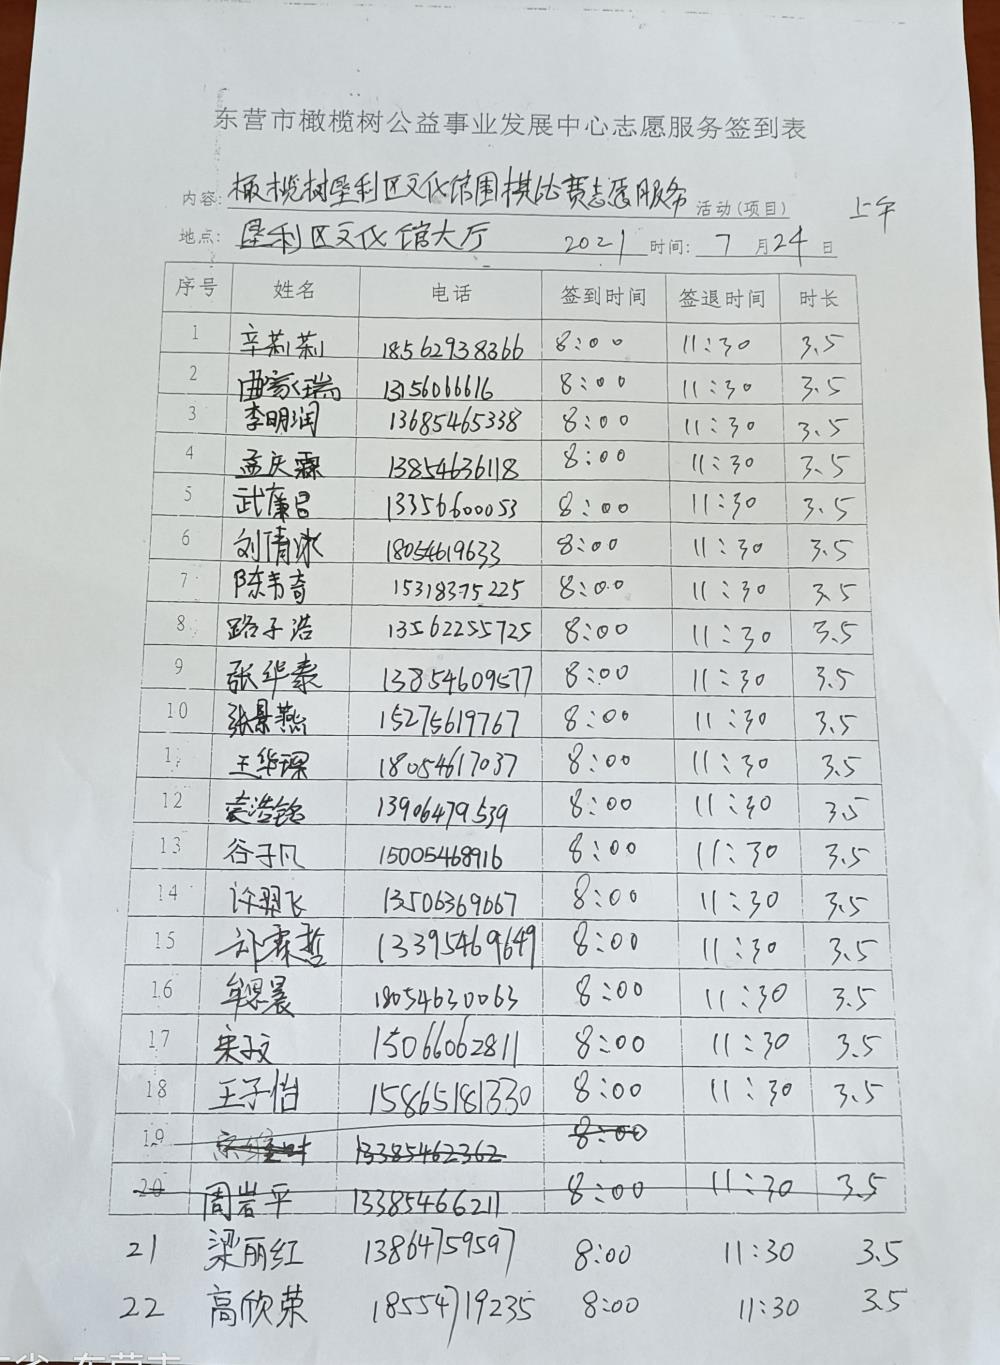 东营市橄榄树公益事业发展中心志愿服务签到表
内容: 橄榄树垦利区文化馆围棋比赛志愿服务 活动(项目) 上午
地点: 垦利区文化馆大厅 2021 时间: 7 月 24 日
序号 姓名 电话 签到时间 签退时间 时长
1 辛莉莉 18562938366 8:00 11:30 3.5
2 曲家瑞 13156066616 8:00 11:30 3.5
3 李明润 13685465338 8:00 11:30 3.5
4 孟庆霖 13854636118 8:00 11:30 3.5
5 武廉吕 13356600053 8:00 11:30 3.5
6 刘倩冰 18054619633 8:00 11:30 3.5
7 陈韦奇 15318375225 8:00 11:30 3.5
8 路子浩 13562255725 8:00 11:30 3.5
9 张华泰 13854609577 8:00 11:30 3.5
10 张景燕 15275619767 8:00 11:30 3.5
1 王华琛 18054617037 8:00 11:30 3.5
12 浩铭 13906479539 8:00 11:30 3.5
13 谷子凡 15005468916 8:00 11:30 3.5
14 许羽飞 13506369667 8:00 11:30 3.5
15 霖哲 13395469649 8:00 11:30 3.5
16 晨 18054630063 8:00 11:30 3.5
17 宋子文 15066062811 8:00 11:30 3.5
18 王子怡 15865181330 8:00 11:30 3.5
19 13385462362 8:00
20 周岩平 13385466211 8:00 11:30 3.5
21 梁丽红 13864759597 8:00 11:30 3.5
22 高欣荣 18554719235 8:00 11:30 3.5
东营市